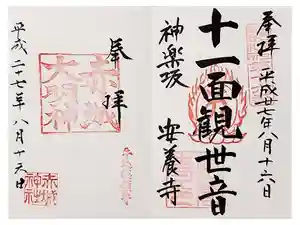 奉拝
平成廿七年八月十六日
十一面観世音
神楽坂
安養寺
奉拝
赤城
大明神
平成二十七年八月十六日
赤城
神社